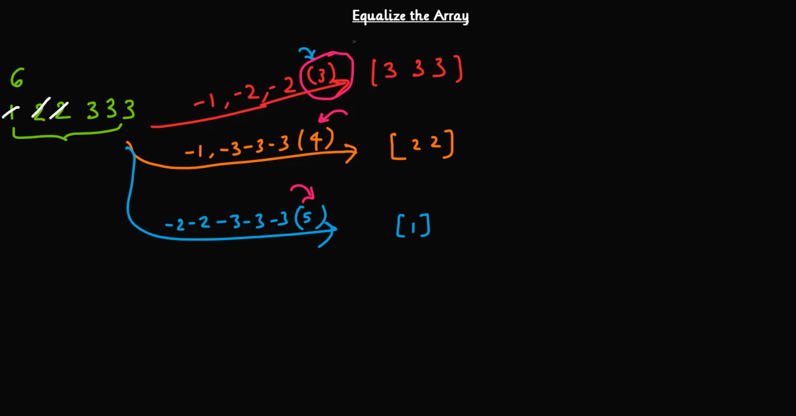 Equalize the Array
6
1 2 2 3 3 3
-1, -2, -2 (3) [3 3 3]
-1, -3 -3 -3 (4) [2 2]
-2 -2 -3 -3 -3 (5) [1]